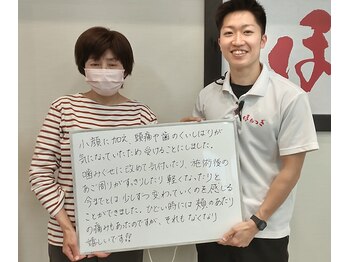 小顔に加え、頭痛や歯のくいしばりが
気になっていたため受けることにしました。
噛みぐせに改めて気付いたり、施術後の
あご周りがすっきりしたり 軽くなったりと
今までとは少しずつ変わっていくのを感じる
ことができました。ひどい時には頬のあたり
の痛みもあったのですが、それもなくなり
嬉しいです!!
ほ